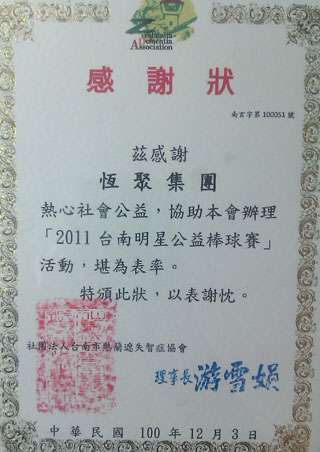 Association
感謝狀
南玄字第100051號
茲感謝
恆聚集團
熱心社會公益,協助本會辦理
「2011台南明星公益棒球賽」
活動,堪為表率。
特頒此狀,以表謝忱。
社團法人台南市熱蘭遮失智症協會
理事長 游雪娟
中華民國 100 年 12 月 3 日